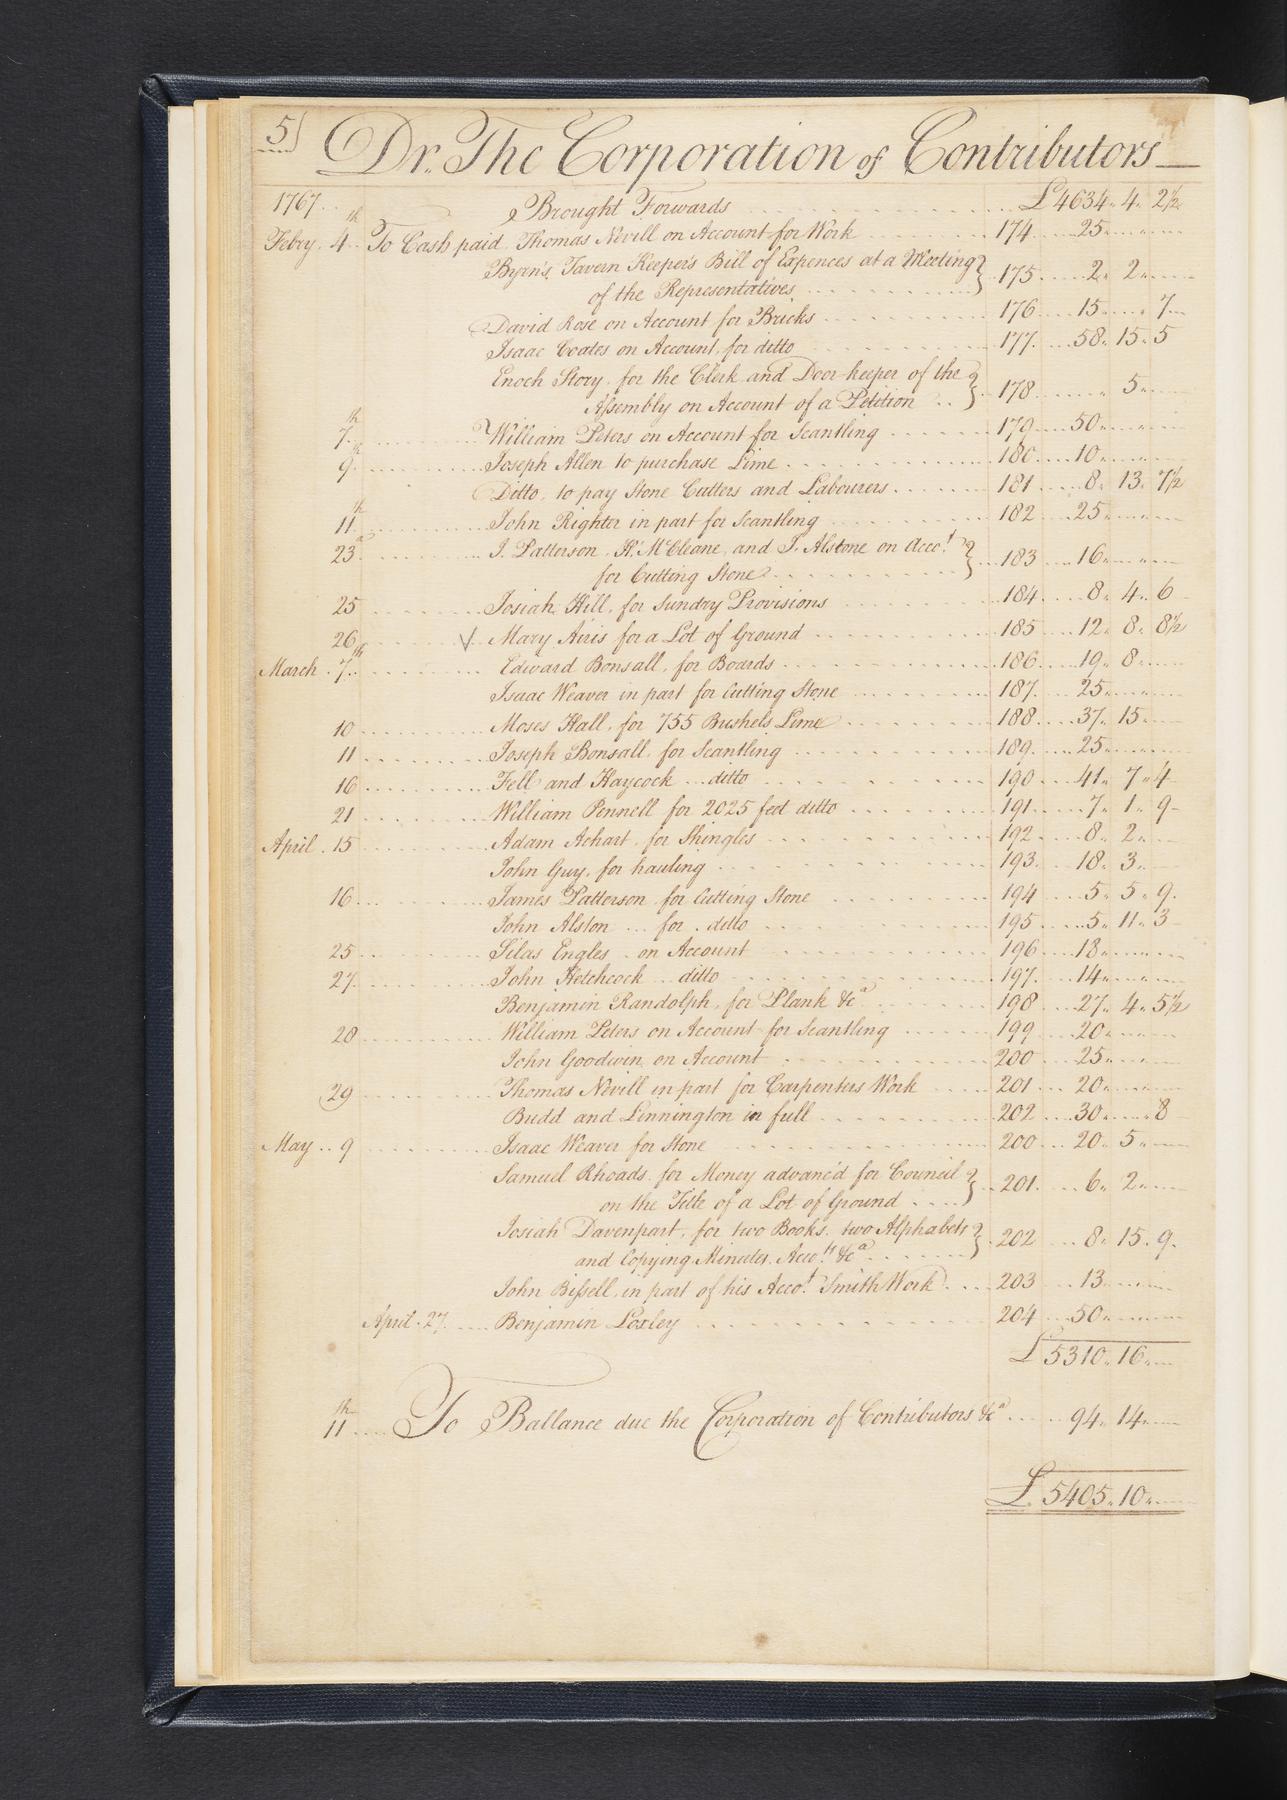 5
Dr. The Corporation of Contributors
1767 Brought Forwards £4634 „ 4 „ 2½
Febry. 4th To Cash paid Thomas Nevill on Account for Work 174 25 „
Byrn's Tavern Keeper's Bill of Expences at a Meeting
of the Representatives 175 2 „ 2 „
David Rose on Account for Bricks 176 15 „ „ 7
Isaac Coates on Account for ditto 177 58 „ 15 „ 5
Enoch Story, for the Clerk and Door-keeper of the
Assembly on Account of a Petition 178 „ 5 „
7th William Peters on Account for Scantling 179 50 „
9th Joseph Allen to purchase Lime 180 10 „
Ditto, to pay Stone Cutters and Labourers 181 8 „ 13 „ 7½
11th John Righter in part for Scantling 182 25 „
23d J. Patterson, H. McCleane, and J. Alstone on Acco.t
for Cutting Stone 183 16 „
25 Josiah Hill, for Sundry Provisions 184 8 „ 4 „ 6
26 √ Mary Airis for a Lot of Ground 185 12 „ 8 „ 8½
March 7th Edward Bonsall, for Boards 186 19 „ 8 „
Isaac Weaver in part for Cutting Stone 187 25 „
10 Moses Hall, for 755 Bushels Lime 188 37 „ 15 „
11 Joseph Bonsall, for Scantling 189 25 „
16 Fell and Haycock ditto 190 41 „ 7 „ 4
21 William Pennell for 2025 feet ditto 191 7 „ 1 „ 9
April 15 Adam Achart, for Shingles 192 8 „ 2 „
John Guy, for hauling 193 18 „ 3 „
16 James Patterson for Cutting Stone 194 5 „ 5 „ 9
John Alston for ditto 195 5 „ 11 „ 3
25 Silas Engles on Account 196 18 „
27 John Hetchcock ditto 197 14 „
Benjamin Randolph, for Plank &ca 198 27 „ 4 „ 5½
28 William Peters on Account for Scantling 199 20 „
John Goodwin on Account 200 25 „
29 Thomas Nevill in part for Carpenters Work 201 20 „
Budd and Linnington in full 202 30 „ „ 8
May 9 Isaac Weaver for Stone 200 20 „ 5 „
Samuel Rhoads, for Money advanc'd for Council
on the Title of a Lot of Ground 201 6 „ 2 „
Josiah Davenpart, for two Books, two Alphabets
and Copying Minutes, Acco.ts &ca 202 8 „ 15 „ 9
John Bissell, in part of his Acco.t Smith Work 203 13 „
April 27 Benjamin Loxley 204 50 „
£ 5310 „ 16 „
11th To Ballance due the Corporation of Contributors &ca 94 „ 14 „
£ 5405 „ 10 „